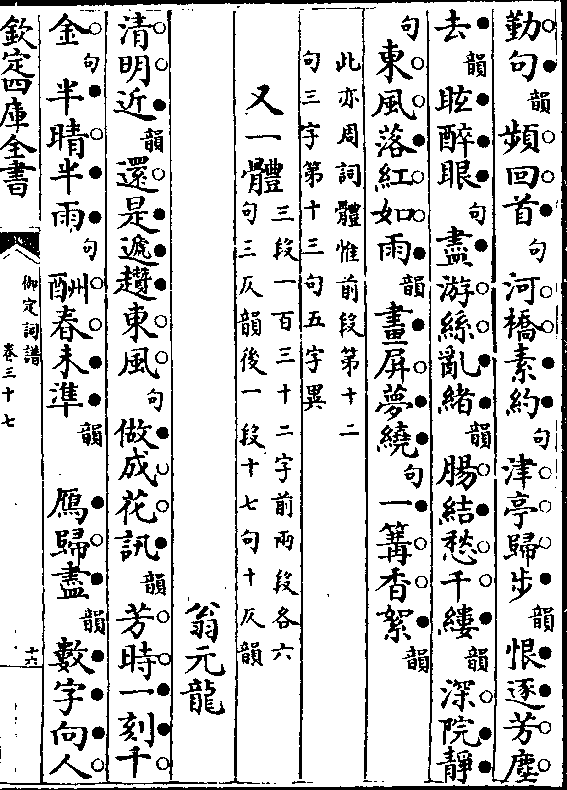 勤句韻頻回首句河橋素約句津亭歸步韻恨逐芳塵
去韻眩醉眼句盡游絲亂緒韻腸結愁千縷韻深院靜
句東風落紅如雨韻畫屏夢繞句一篝香絮韻
此亦周詞體惟前段第十二
句三字第十三句五字異
又一體三段一百三十二字前兩段各六
句三仄韻後一段十七句十仄韻
翁元龍
清明近韻還是遞趲東風句做成花訊韻芳時一刻千
金句半晴半雨句酬春未準韻鴈歸盡韻數字向人
欽定四庫全書
御定詞譜
卷三十七
十六